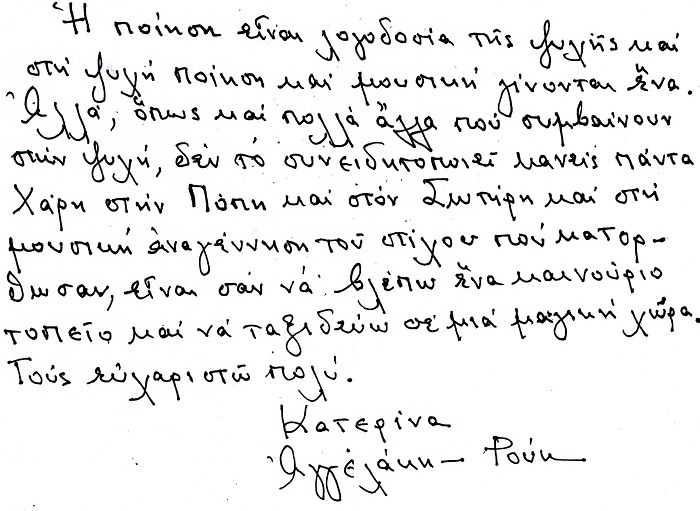 Ἡ ποίηση εἶναι λογοδοσία τῆς ψυχῆς καί
στή ψυχή ποίηση καί μουσική γίνονται ἕνα.
Ἀλλά, ὅπως καί πολλά ἄλλα πού συμβαίνουν
στήν ψυχή, δέν τό συνειδητοποιεῖ κανείς πάντα
Χάρη στήν Πόπη καί στόν Σωτήρη καί στή
μουσική ἀναγέννηση τοῦ στίχου πού κατορ-
θωσαν, εἶναι σάν νά βλέπω ἕνα καινούριο
τοπεῖο καί νά ταξιδεύω σέ μιά μαγική χώρα.
Τούς εὐχαριστῶ πολύ.
Κατερίνα
Ἀγγελάκη - Ρούκ